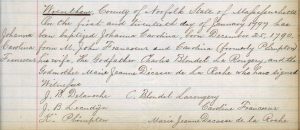 Wrentham, County of Norfolk State of Massachusetts
On the first and twentieth day of January 1799 has
Johanna been baptized Johanna Carolina, Geo December 25, 1790.
Carolina from M. John Francoeur and Carolina (formerly Plimpton)
Francoeur his wife, the Godfather Charles Blondel La Rougery, and the
Godmother Marie Jeanne Decasse de La Roche who have signed
Witnesses
J. M. Delaroche C. Blondel Larougery
J. B. Caroline Francoeur
K. Plimpton Marie Jeanne Decasse de la Roche